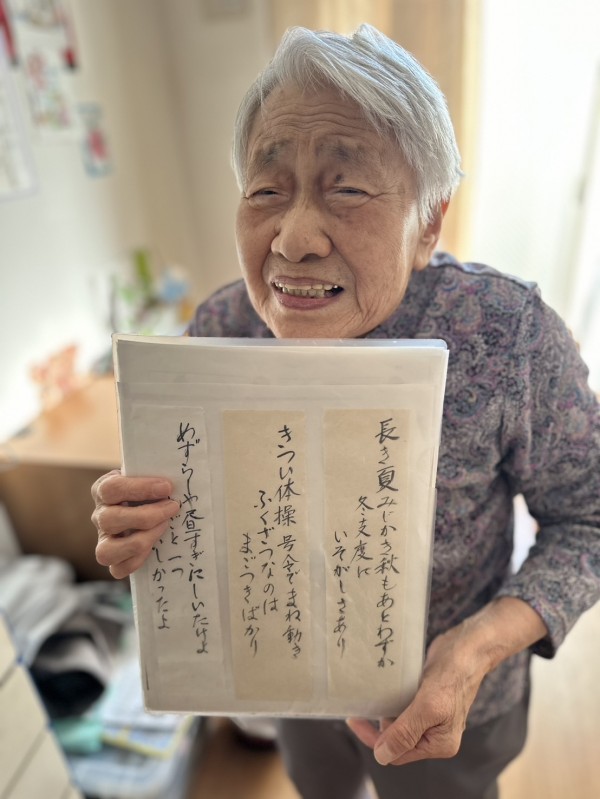 長き夏みじかき秋もあとわずか
冬支度に
いそがしさあり
きつい体操号令でまね動き
ふくざつなのは
まごつきばかり
めずらしや昼すぎにしいたけよ
と一つ
しかったよ